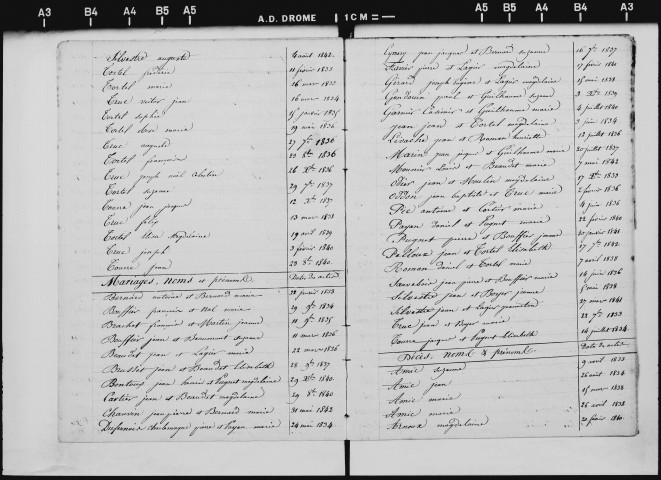 A3 B4 A4 B5 A5 A.D. DROME 1 CM A5 B5 A4 B4 A3
Silvestre auguste 4 août 1842
Tortel 11 février 1833
Tortel marie 26 mars 1833
Truc victor jean 16 mars 1834
Tortel sophie 15 janvier 1835
Tortel marie 19 mai 1836
Truc auguste 27 7bre 1836
Tortel françoise 23 8bre 1836
Truc joseph noël 26 Xbre 1836
Tortel suzanne 29 7bre 1837
Tourre jean jacques 12 Xbre 1837
Truc félix 13 mars 1838
Tortel Elisa Magdeleine 19 avril 1839
Truc joseph 3 février 1840
Tourre jean 23 8bre 1840
Mariages, noms et prénoms Dates des actes
Bernard antoine et Bernard marie 22 janvier 1833
Bouffier françois et Nal marie 29 9bre 1834
Brachet françois et Martin jeanne 11 9bre 1835
Bouffier jean et Beaumont suzanne 11 mars 1836
Beaudet jean et Lagier marie 22 mars 1836
Brusset jean et Beaudet Elisabeth 28 9bre 1837
Bontoux jean louis et Puget magdelaine 29 Xbre 1840
Cartier jean et Beaudet magdelaine 29 8bre 1840
Chauvin jean pierre et Bernard marie 31 mai 1842
Dufresnois charlemagne pierre et Payan marie 24 mai 1834
jean jacques et Bernard suzanne 16 7bre 1837
pierre et Lagier magdelaine 17 février 1840
Gérard joseph eugène et Lagier magdelaine 15 mai 1838
Gendouin paul et Guilhaume suzanne 3 Xbre 1839
Garnier Casimir et Guilhaume marie 4 juillet 1840
jean jean et Tortel magdelaine 3 juin 1834
Livache jean et Roman henriette 12 juillet 1836
Marin jean pierre et Guilhaume marie 20 juillet 1837
Monnier Louis et Beaudet marie 7 mai 1842
Odier jean et Moulin magdelaine 17 Xbre 1833
Oddon jean baptiste et Truc marie 2 février 1836
Pez antoine et Cartier marie 4 juin 1836
Payan daniel et Puget marie 22 février 1840
Puget pierre et Bouffier jeanne 20 janvier 1841
Pelloux jean et Tortel Elisabeth 27 7bre 1842
Roman daniel et Tortel marie 7 avril 1838
jean pierre et Bouffier marie 14 juin 1836
Silvestre jean et Boyer jeanne 8 mai 1838
Silvestre jean et Lagier 27 mars 1841
Truc jean et Boyer marie 23 7bre 1833
Tourre jacques et Puget Elisabeth 16 juillet 1834
Décès, noms & prénoms Dates des actes
Amic suzanne 9 avril 1833
Amic jean 26 août 1834
Amic marie 15 mars 1838
Amic marie 26 avril 1838
Arnoux magdelaine 20 février 1840